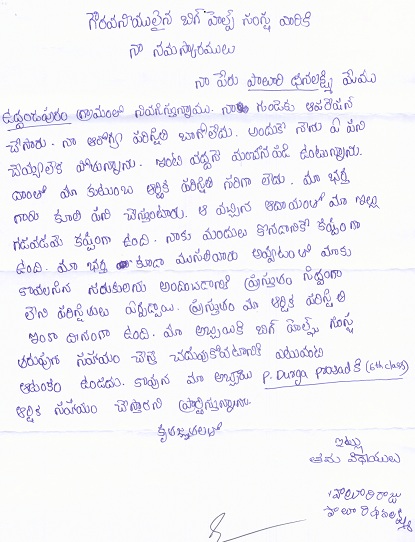 గౌరవనీయులైన బిగ్ హెల్ప్ సంస్థ వారికి
నా నమస్కారములు
నా పేరు పాలూరి ధనలక్ష్మి మేము
ఉద్దండపురం గ్రామంలో నివసిస్తున్నాము. నాకు గుండెకు ఆపరేషన్
చేసారు. నా ఆరోగ్య పరిస్థితి బాగోలేదు. అందుకే నేను ఏ పని
చెయ్యలేక పోతున్నాను. ఇంటి వద్దనే ఉంటున్నాను.
దాంతో మా కుటుంబ ఆర్థిక పరిస్థితి సరిగా లేదు. మా భర్త
గారు కూలి పని చేస్తుంటారు. ఆ వచ్చిన ఆదాయంతో మా ఇల్లు
గడవడమే కష్టంగా ఉంది. నాకు మందులు కొనడానికే కష్టంగా
ఉంది. మా భర్త కూడా ముసలివారు అవ్వటంతో మాకు
కావలసిన సరుకులను అందించడానికి ప్రస్తుతం సిద్ధంగా
లేని పరిస్థితులు ఏర్పడ్డాయి. ప్రస్తుతం మా ఆర్థిక పరిస్థితి
ఇంకా దీనంగా ఉంది. మా అబ్బాయికి బిగ్ హెల్ప్ సంస్థ
తరుపున సహాయం చేస్తే చదువుకోవటానికి ఎటువంటి
ఆటంకం ఉండదు. కావున మా అబ్బాయి P. Durga Prasad కి (6th class)
ఆర్థిక సహాయం చేస్తారని ప్రార్థిస్తున్నాను.
కృతజ్ఞతలతో
ఇట్లు
తమ విధేయులు
పాలూరి రాజు
పాలూరి ధనలక్ష్మి